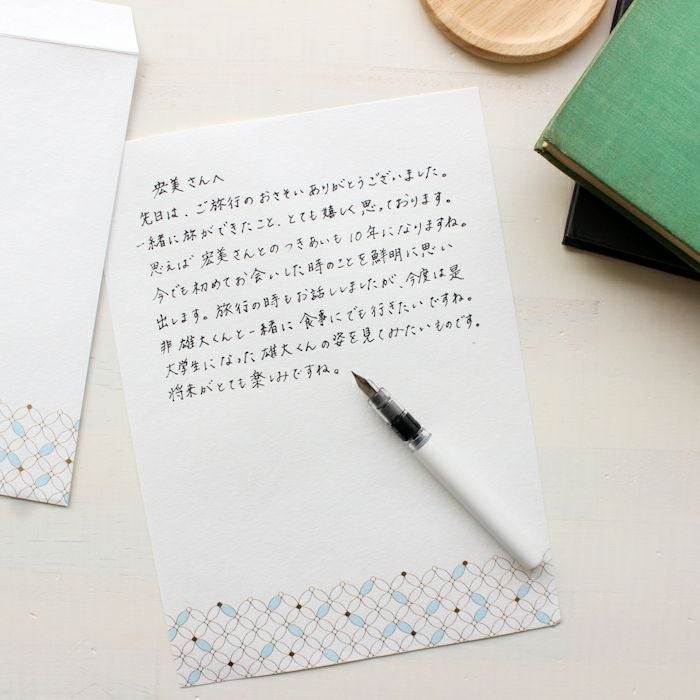 宏美さんへ
先日は、ご旅行のおさそいありがとうございました。
一緒に旅ができたこと、とても嬉しく思っております。
思えば宏美さんとのつきあいも10年になりますね。
今でも初めてお会いした時のことを鮮明に思い
出します。旅行の時もお話ししましたが、今度は是
非雄大くんと一緒に食事にでも行きたいですね。
大学生になった雄大くんの姿を見てみたいものです。
将来がとても楽しみですね。